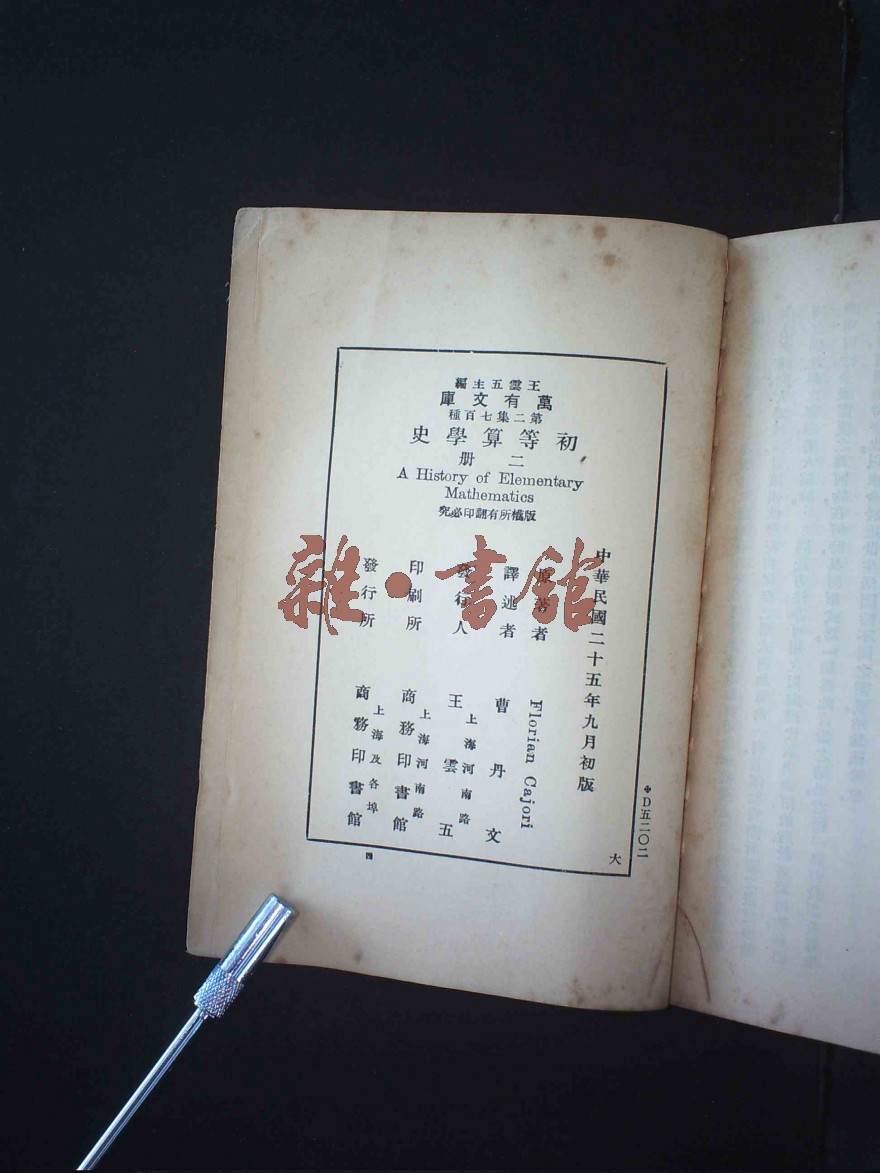 王雲五主編
萬有文庫
第二集七百種
初等算學史
二册
A History of Elementary
Mathematics
版權所有翻印必究
中華民國二十五年九月初版
原著者 Florian Cajori
譯述者 曹丹文
發行人 王雲五
上海河南路
印刷所 商務印書館
上海河南路
發行所 商務印書館
上海及各埠
D五二〇二
大
四
雜·書館